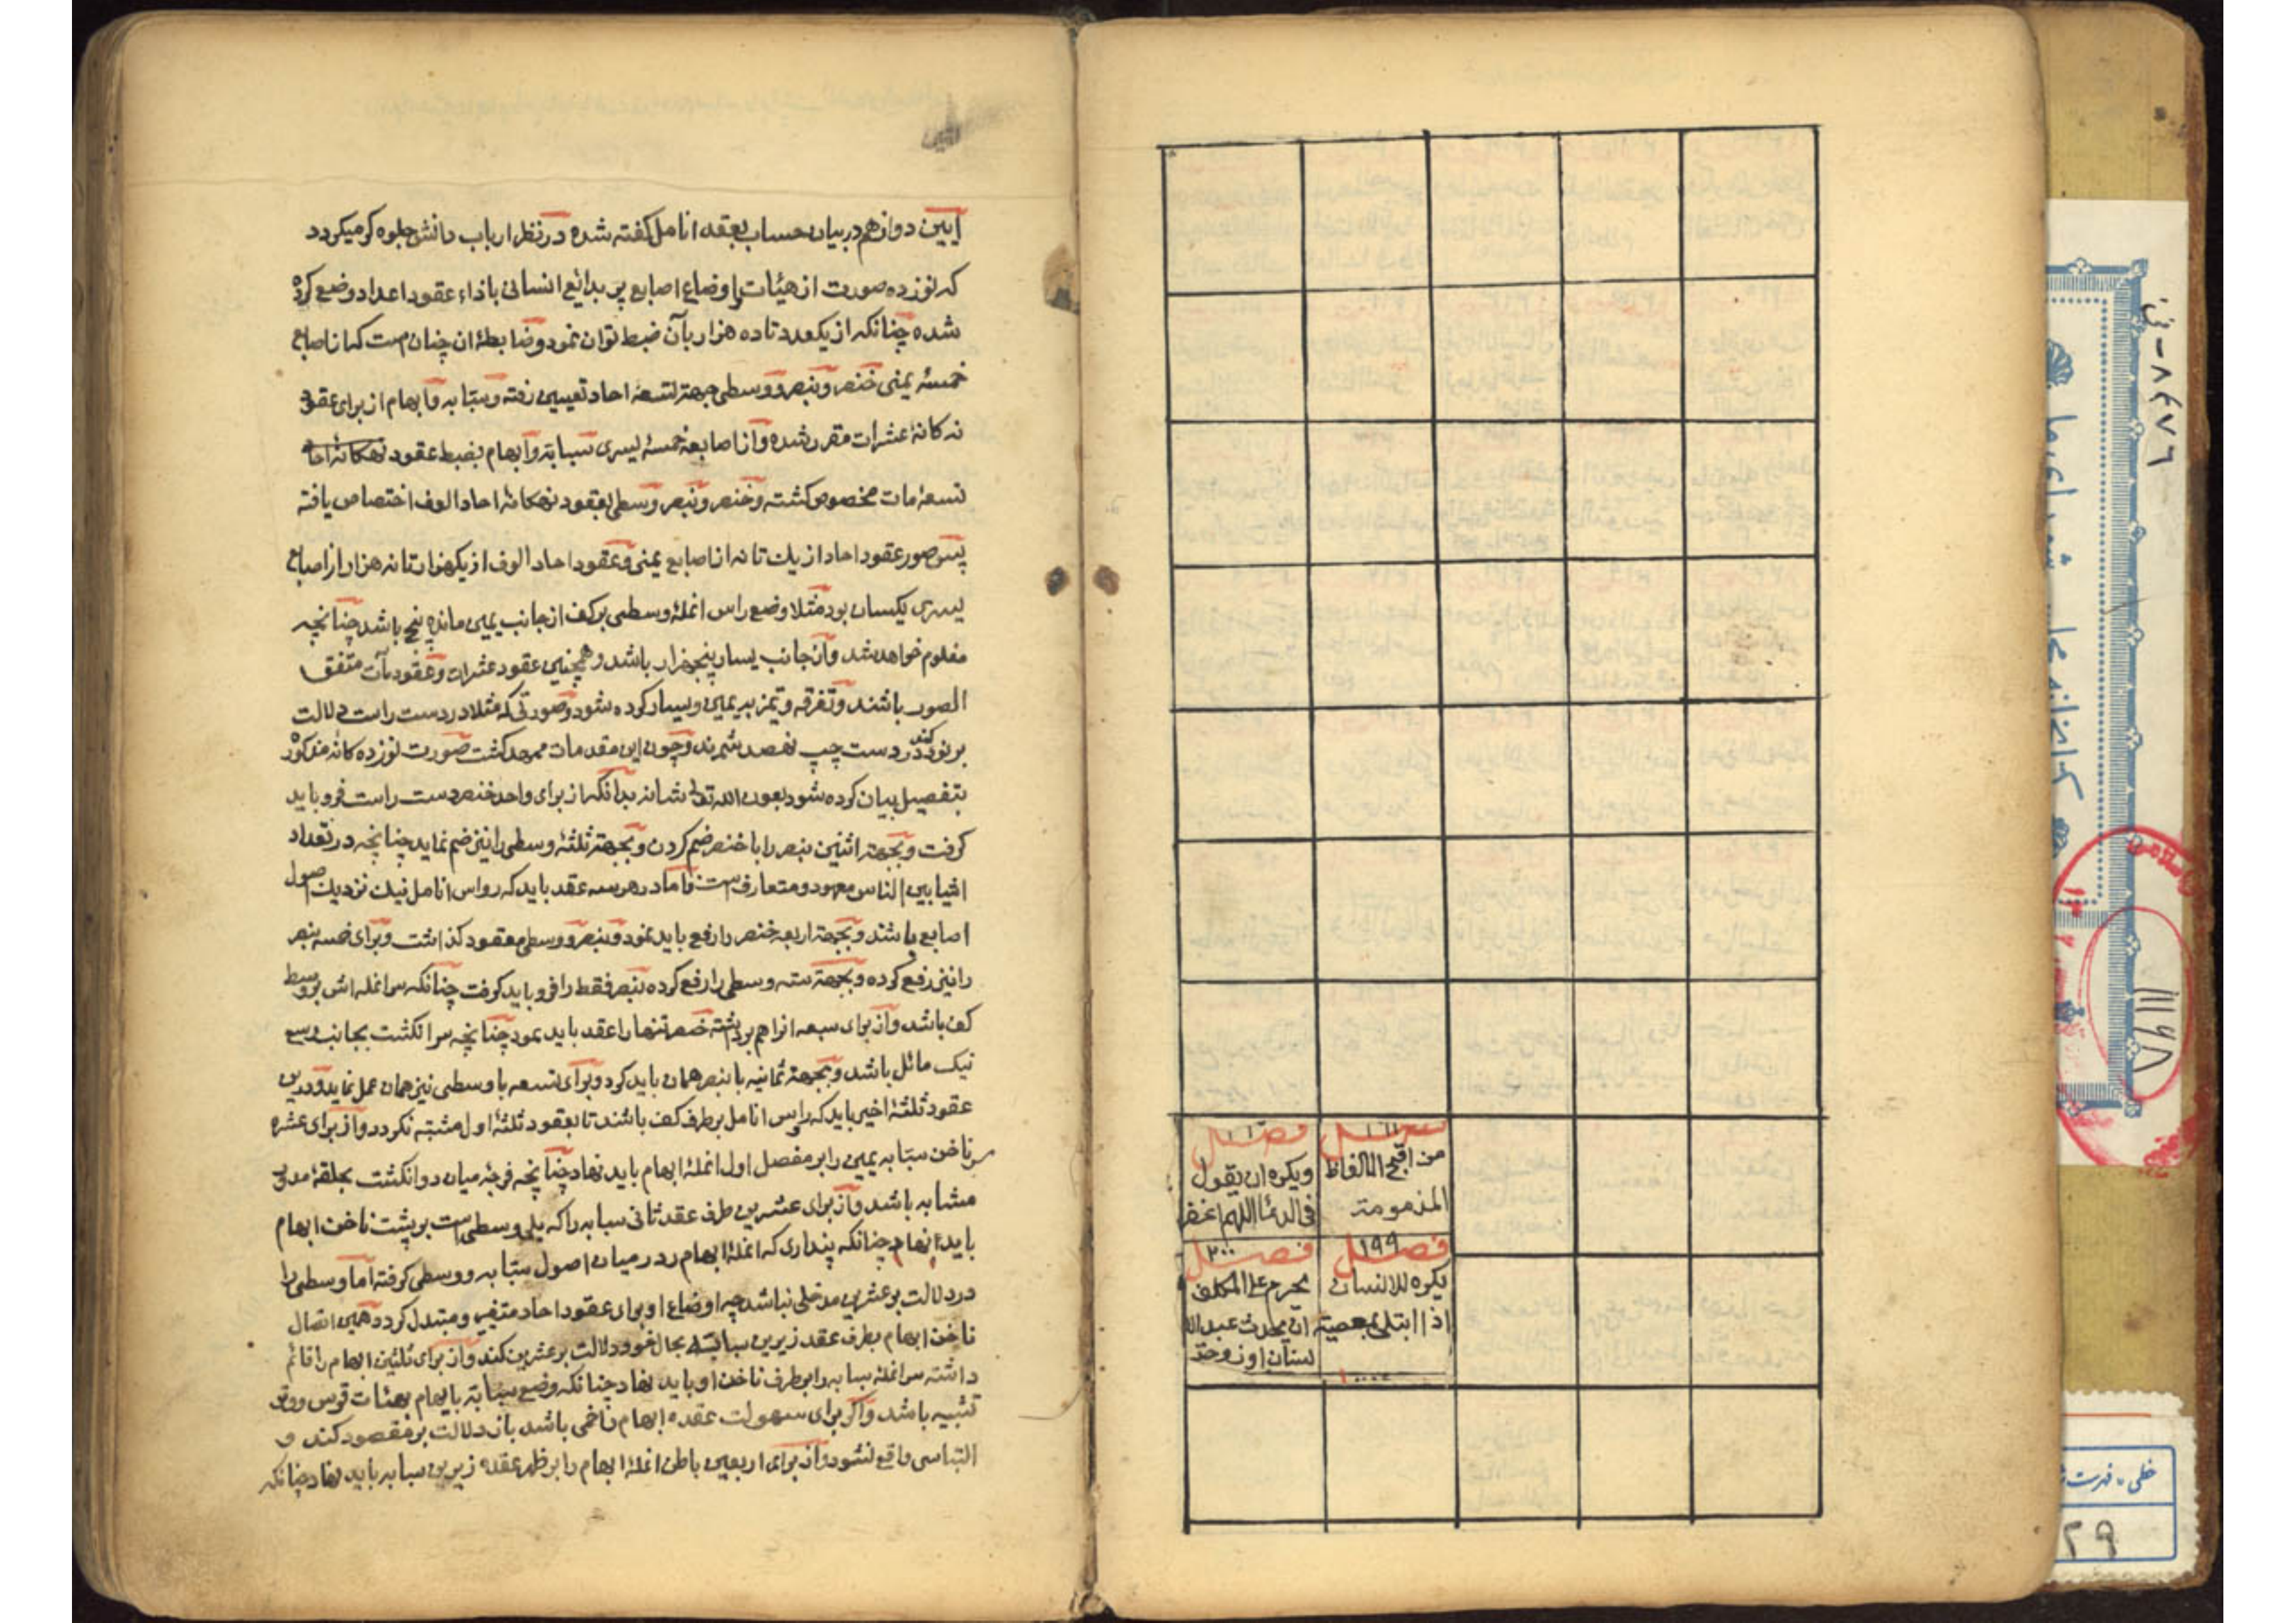 آیین دوازهم در بیان حساب بعقد انامل گفته شده در نظر ارباب دانش جلوه گر میگردد
که نوزده صورت از هیئات اوضاع اصابع پر بدائع انسانی باذاء عقود اعداد وضع کرده
شده چنانکه از یکعدد تا ده هزار بآن ضبط توان نمود و ضابطهٔ ان چنان است که از اصابع
خمسهٔ یمنی خنصر و بنصر و وسطی جهتر تسعهٔ احاد تعیین رفته و سبابه و ابهام از برای عقود
نه کانهٔ عشرات مقرر شده و از اصابع خمسهٔ یسری سبابة و ابهام بضبط عقود نهکانهٔ احاد
تسعهٔ مات مخصوص کشته و خنصر و بنصر و وسطی بعقود نهکانهٔ احاد الوف اختصاص یافته
پس صور عقود احاد از یك تا نه از اصابع یمنی و عقود احاد الوف از یکهزار تا نه هزار از اصابع
یسری یکسان بود مثلا وضع راس انملهٔ وسطی بر کف از جانب یمین مانزه پنج باشد چنانچه
معلوم خواهد شد و از جانب یسار پنجهزار باشد و همچنین عقود عشرات و عقود مآت متفق
الصور باشند و تفرقه و تمیز بیمین و یسار کرده شود و صورتی که مثلا در دست راست دلالت
بر نود کند در دست چپ نهصد شمرند و چون این مقدمات ممهد کشت صورت نوزده کانه مذکوره
بتفصیل بیان کرده شود بعون الله تعالی شانه بدانکه از برای واحد خنصر دست راست فرو باید
کرفت و بجهتر اثنین بنصر را با خنصر ضم کردن و بجهتر ثلثهٔ وسطی را نیز ضم نماید چنانچه در تعداد
اشیا بین الناس معهود و متعارف است اما در هر سه عقد باید که رواس انامل نیك نزدیك اصول
اصابع باشند و بجهتر اربعه خنصر را رفع باید نمود و بنصر و وسطی معقود کذاشت و برای خمسه بنصر
را نیز رفع کرده و بجهتر سته وسطی را رفع کرده بنصر فقط را فرو باید کرفت چنانکه سر انمله اش بر وسط
کف باشد و از برای سبعه انرا هم برداشته خنصر تنها را عقد باید نمود چنانچه سر انکشت بجانب رسغ
نیک مائل باشد و بجهتر ثمانیه با بنصر همان باید کرد و برای تسعه با وسطی نیز همان عمل نماید و در این
عقود ثلثهٔ اخیر باید که رؤس انامل بر طرف کف باشند تا بعقود ثلثهٔ اول مشتبه نکردد و از برای عشره
سر ناخن سبابه یمین را بر مفصل اول انملهٔ ابهام باید نهاد چنانچه فرجه میان دو انکشت بحلقهٔ مدور
مشابه باشد و از برای عشرین طرف عقد ثانی سبابه را که یلی وسطی است بر پشت ناخن ابهام
باید نهاد چنانکه پنداری که انملهٔ ابهام در میان اصول سبابه و وسطی کرفته اما وسطی را
در دلالت بر عشرین مدخلی نباشد چه اوضاع او برای عقود احاد متغیر و متبدل کردد همین اتصال
ناخن ابهام بطرف عقد زیرین سبابه بحال خود دلالت بر عشرین کند و از برای ثلثین ابهام را قائم
داشته سر انملهٔ سبابه را بر طرف ناخن او باید نهاد چنانکه وضع سبابة با ابهام بهیئات قوس و وتر
تشبیه باشد و اگر برای سهولت عقده ابهام باشد باز دلالت بر مقصود کند و
التباسی واقع نشود و از برای اربعین باطن انملهٔ ابهام را بر ظهر عقده زیرین سبابه باید نهاد چنانکه
فصل
من اقبح الالفاظ
المذمومة
فصل
ویکره ان یقول
فی الدعٔا اللهم اغفر
فصل ١٩٩
یکره للانسان
اذا ابتلی بمعصیة
فصل ٢٠٠
یحرم علی المکلف
ان یحدث عبد الله
لسنان او زوجة
٨٤٧٦
١١١٤٨
خطی - فهرست
٢٩